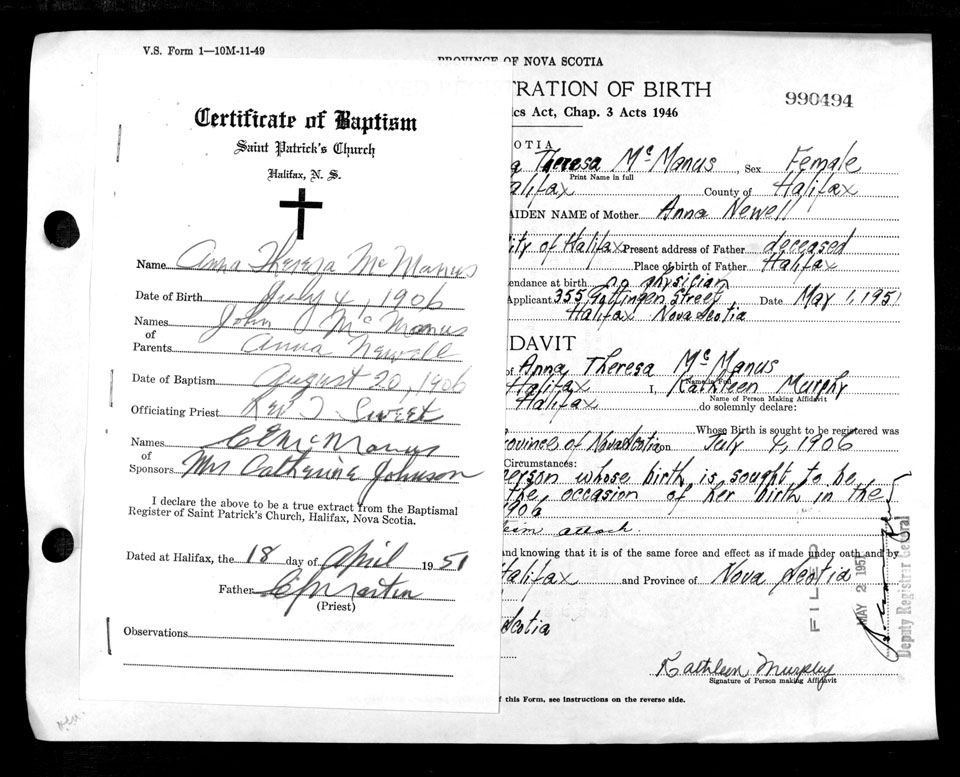 V.S. Form 1—10M-11-49
PROVINCE OF NOVA SCOTIA
TRATION OF BIRTH
990494
cs Act, Chap. 3 Acts 1946
Certificate of Baptism
Saint Patrick's Church
Halifax, N. S.
Name Anna Theresa McManus
Date of Birth July 4, 1906
Names of Parents John McManus
Anna Newell
Date of Baptism August 20, 1906
Officiating Priest Rev Sweet
Names of Sponsors McManus
Mrs Catherine Johnson
I declare the above to be a true extract from the Baptismal
Register of Saint Patrick's Church, Halifax, Nova Scotia.
Dated at Halifax, the 18 day of April 1951
Father Martin
(Priest)
Observations
SCOTIA
a Theresa McManus, Sex Female
Print Name in full
alifax County of Halifax
AIDEN NAME of Mother Anna Newell
ity of Halifax Present address of Father deceased
Place of birth of Father Halifax
endance at birth no physician
Applicant 355 Gottingen Street, Date May 1, 1951
Halifax Nova Scotia
DAVIT
of Anna Theresa McManus
Name in Full
Halifax I, Kathleen Murphy
Name of Person Making Affidavit
Halifax do solemnly declare:
Whose Birth is sought to be registered was
rovince of Nova Scotia on July 4, 1906
Circumstances:
erson whose birth is sought to be
the occasion of her birth in the
1906
attach.
and knowing that it is of the same force and effect as if made under oath and by
Halifax and Province of Nova Scotia
Scotia
FILED
MAY 2 1951
Deputy Registrar General
Kathleen Murphy
Signature of Person making Affidavit
f this Form, see instructions on the reverse side.